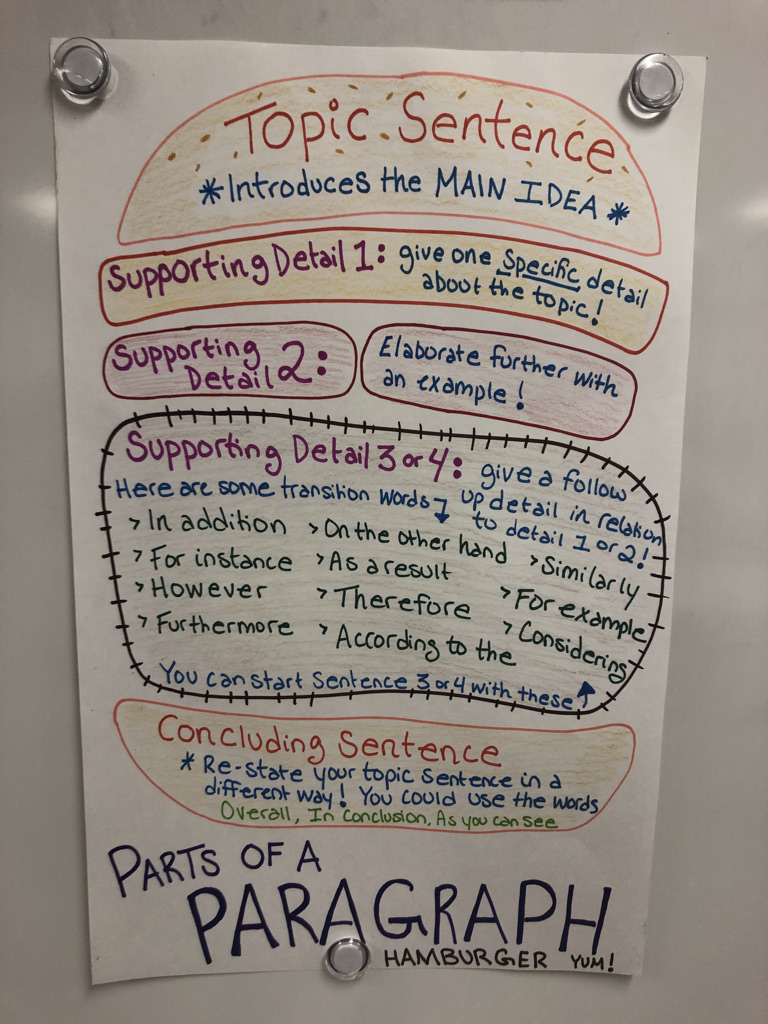 Topic Sentence
*Introduces the MAIN IDEA *
Supporting Detail 1: give one Specific detail
about the topic!
Supporting
Detail 2:
Elaborate further with
an example!
Supporting Detail 3 or 4: give a follow
up detail in relation
to detail 1 or 2!
Here are some transition words
> In addition
> For instance
> However
> Furthermore
> On the other hand
> As a result
> Therefore
> According to the
> Similarly
> For example
> Considering
You can start Sentence 3 or 4 with these!
Concluding Sentence
* Re-state your topic sentence in a
different way! You could use the words
Overall, In Conclusion, As you can see
PARTS OF A
PARAGRAPH
HAMBURGER YUM!